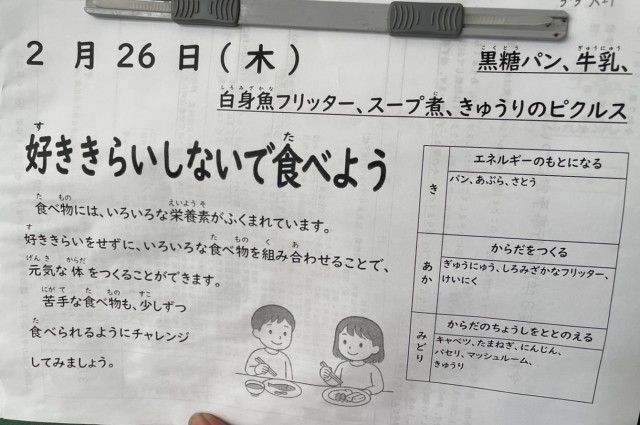 2 月 26 日 ( 木 )
黒糖パン、牛乳、
白身魚フリッター、スープ煮、きゅうりのピクルス
好ききらいしないで食べよう
食べ物には、いろいろな栄養素がふくまれています。
好ききらいをせずに、いろいろな食べ物を組み合わせることで、
元気な体をつくることができます。
苦手な食べ物も、少しずつ
食べられるようにチャレンジ
してみましょう。
き
エネルギーのもとになる
パン、あぶら、さとう
あか
からだをつくる
ぎゅうにゅう、しろみざかなフリッター、
けいにく
みどり
からだのちょうしをととのえる
キャベツ、たまねぎ、にんじん、
パセリ、マッシュルーム、
きゅうり